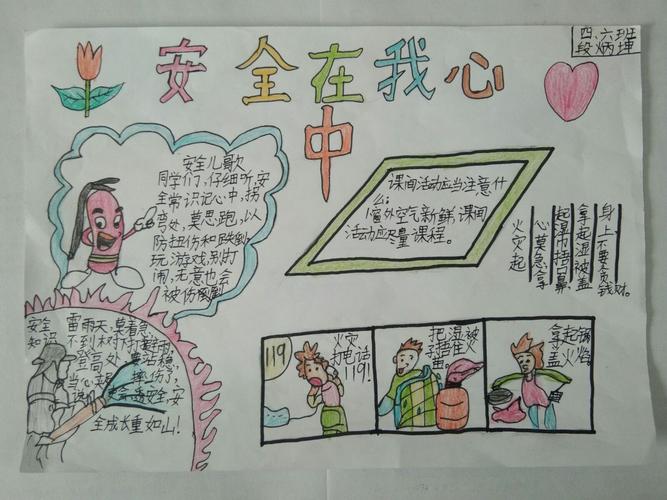 四、六班
段炳坤
安全在我心
中
安全儿歌
同学们,仔细听,安
全常识记心中,拐
弯处,莫思跑,以
防扭伤和跌倒
玩游戏,别打
闹,无意也会
被伤倒
课间活动应当注意什
么:
窗外空气新鲜,课间
活动应尽量课程。
火灾起
心莫急拿
起湿巾捂口鼻
拿起湿被盖
身上不要贪钱财。
安全 雷雨天,莫着急
知识 不到树
登高处
当心
全成长重如山!
119
火灾
打电话
119!
把湿被
捂住火
苗。
拿起锅
盖火焰。